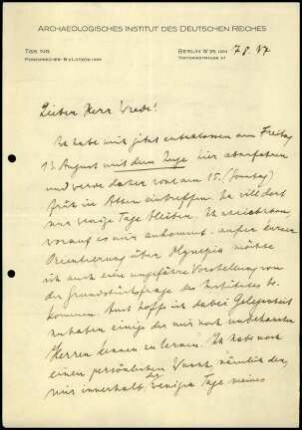 ARCHAEOLOGISCHES INSTITUT DES DEUTSCHEN REICHES
TGB. NR.
BERLIN W 35, DEN 7. 8. 37
FERNSPRECHER: B 1 KURFÜRST
Lieber Herr Wrede!
Ich habe mich jetzt entschlossen am Freitag
13. August mit dem Zuge hier abzufahren
und werde daher wohl am 15. (Sonntag)
früh in Athen eintreffen. Ich will dort
nur wenige Tage bleiben. Ich
worauf es mir ankommt. außer einer
Orientierung über Olympia möchte
ich auch eine ungefähre Vorstellung von
der Grundstücksfrage des Institutes be-
kommen. Auch hoffe ich dabei Gelegenheit
zu haben einige der mir noch unbekannten
Herren kennen zu lernen. Ich habe noch
einen persönlichen Wunsch, nämlich den,
mir innerhalb der wenigen Tage meines